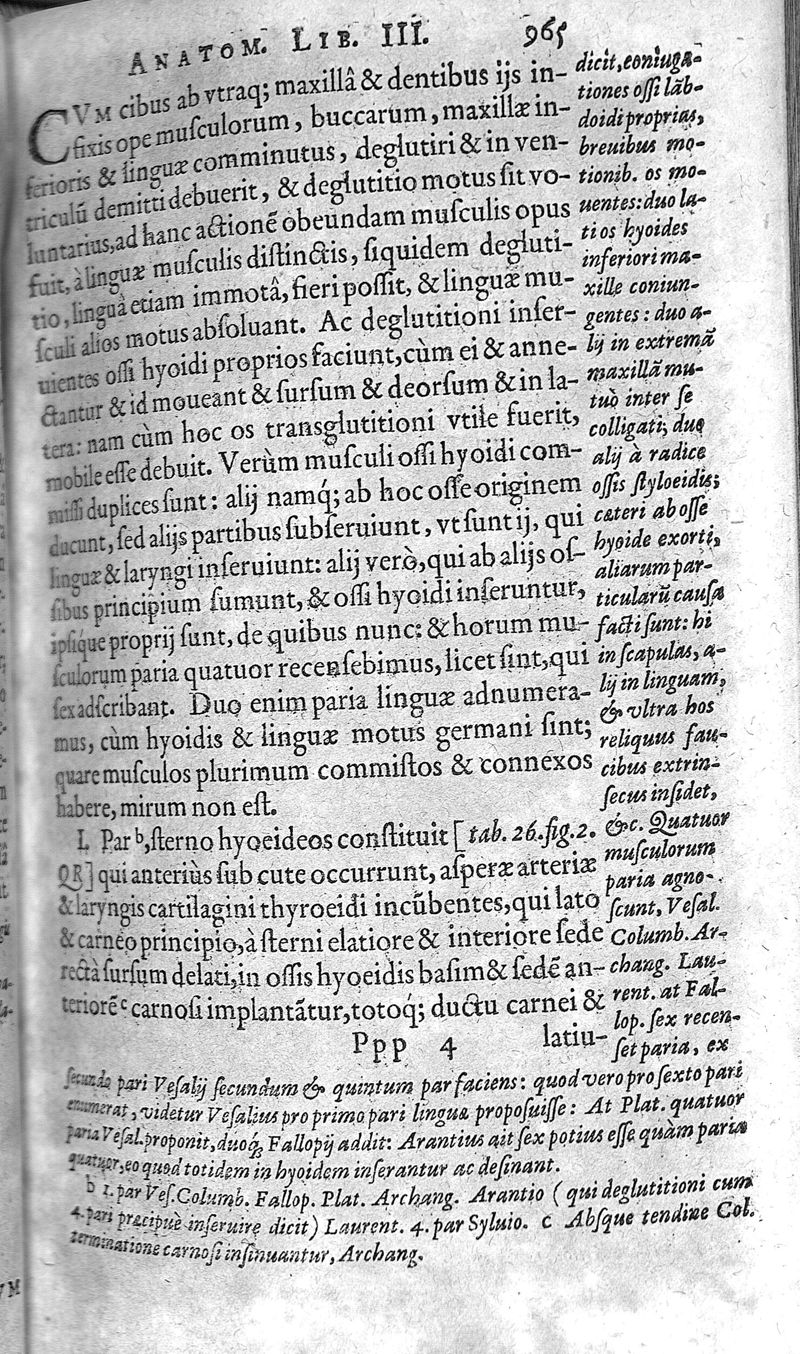 ANATOM. LIB. III. 965
CVM cibus ab vtraq; maxillâ & dentibus ijs in-
fixis ope muſculorum, buccarum, maxillæ in-
ferioris & linguæ comminutus, deglutiri & in ven-
triculū demitti debuerit, & deglutitio motus ſit vo-
luntarius, ad hanc actionē obeundam muſculis opus
fuit, à linguæ muſculis diſtinctis, ſiquidem degluti-
tio, linguâ etiam immotâ, fieri poſſit, & linguæ mu-
ſculi alios motus abſoluant. Ac deglutitioni inſer-
uientes oſſi hyoidi proprios faciunt, cùm ei & anne-
ctantur & id moueant & ſurſum & deorſum & in la-
tera: nam cùm hoc os transglutitioni vtile fuerit,
mobile eſſe debuit. Verùm muſculi oſſi hyoidi com-
miſſi duplices ſunt: alij namq́; ab hoc oſſe originem
ducunt, ſed alijs partibus ſubſeruiunt, vt ſunt ij, qui
linguæ & laryngi inſeruiunt: alij verò, qui ab alijs oſ-
ſibus principium ſumunt, & oſſi hyoidi inſeruntur,
ipſique proprij ſunt, de quibus nunc: & horum mu-
ſculorum paria quatuor recenſebimus, licet ſint, qui
ſex adſcribant. Duo enim paria linguæ adnumera-
mus, cùm hyoidis & linguæ motus germani ſint;
quare muſculos plurimum commiſtos & connexos
habere, mirum non eſt.
I. Par b, ſterno hyoeideos conſtituit [tab. 26. fig. 2.
QR] qui anteriùs ſub cute occurrunt, aſperæ arteriæ
& laryngis cartilagini thyroeidi incūbentes, qui lato
& carneo principio, à ſterni elatiore & interiore ſede
rectà ſurſum delati, in oſſis hyoeidis baſim & ſedē an-
teriorē c carnoſi implantātur, totoq́; ductu carnei &
Ppp 4 latiu-
dicit, coniuga-
tiones oſſi lāb-
doidi proprias,
breuibus mo-
tionib. os mo-
uentes: duo la-
ti os hyoides
inferiori ma-
xille coniun-
gentes: duo a-
lij in extremā
maxillā mu-
tuò inter ſe
colligati; duo
alij à radice
oſſis ſtyloeidis;
cæteri ab oſſe
hyoide exorti,
aliarum par-
ticularū cauſa
facti ſunt: hi
in ſcapulas, a-
lij in linguam,
& vltra hos
reliquus fau-
cibus extrin-
ſecus inſidet,
&c. Quatuor
muſculorum
paria agno-
ſcunt, Veſal.
Columb. Ar-
chang. Lau-
rent. at Fal-
lop. ſex recen-
ſet paria, ex
ſecundo pari Veſalij ſecundum & quintum par faciens: quod vero pro ſexto pari
enumerat, videtur Veſalius pro primo pari linguæ propoſuiſſe: At Plat. quatuor
paria Veſal. proponit, duoq́; Fallopij addit: Arantius ait ſex potius eſſe quàm paria
quatuor, eo quod totidem in hyoidem inſerantur ac deſinant.
b 1. par Veſ. Columb. Fallop. Plat. Archang. Arantio (qui deglutitioni cum
4. pari præcipuè inſeruire dicit) Laurent. 4. par Syluio. c Abſque tendine Col.
terminatione carnoſi inſinuantur, Archang.